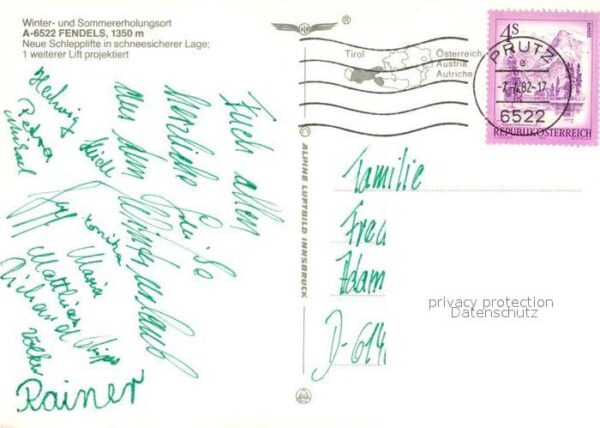 Winter- und Sommererholungsort
A-6522 FENDELS, 1350 m
Neue Schlepplifte in schneesicherer Lage;
1 weiterer Lift projektiert
Tirol
Österreich
Austria
Autriche
PRUTZ
a
82-17
6522
4S
REPUBLIK ÖSTERREICH
ALPINE LUFTBILD INNSBRUCK
Euch allen
herzliche Grüße
aus dem Winterurlaub
Hedwig
Petra
Michael
Heidi
Monika
Maria
Matthias
Richard
Volker
Rainer
Familie
Fred
Adam
D-614
privacy protection
Datenschutz